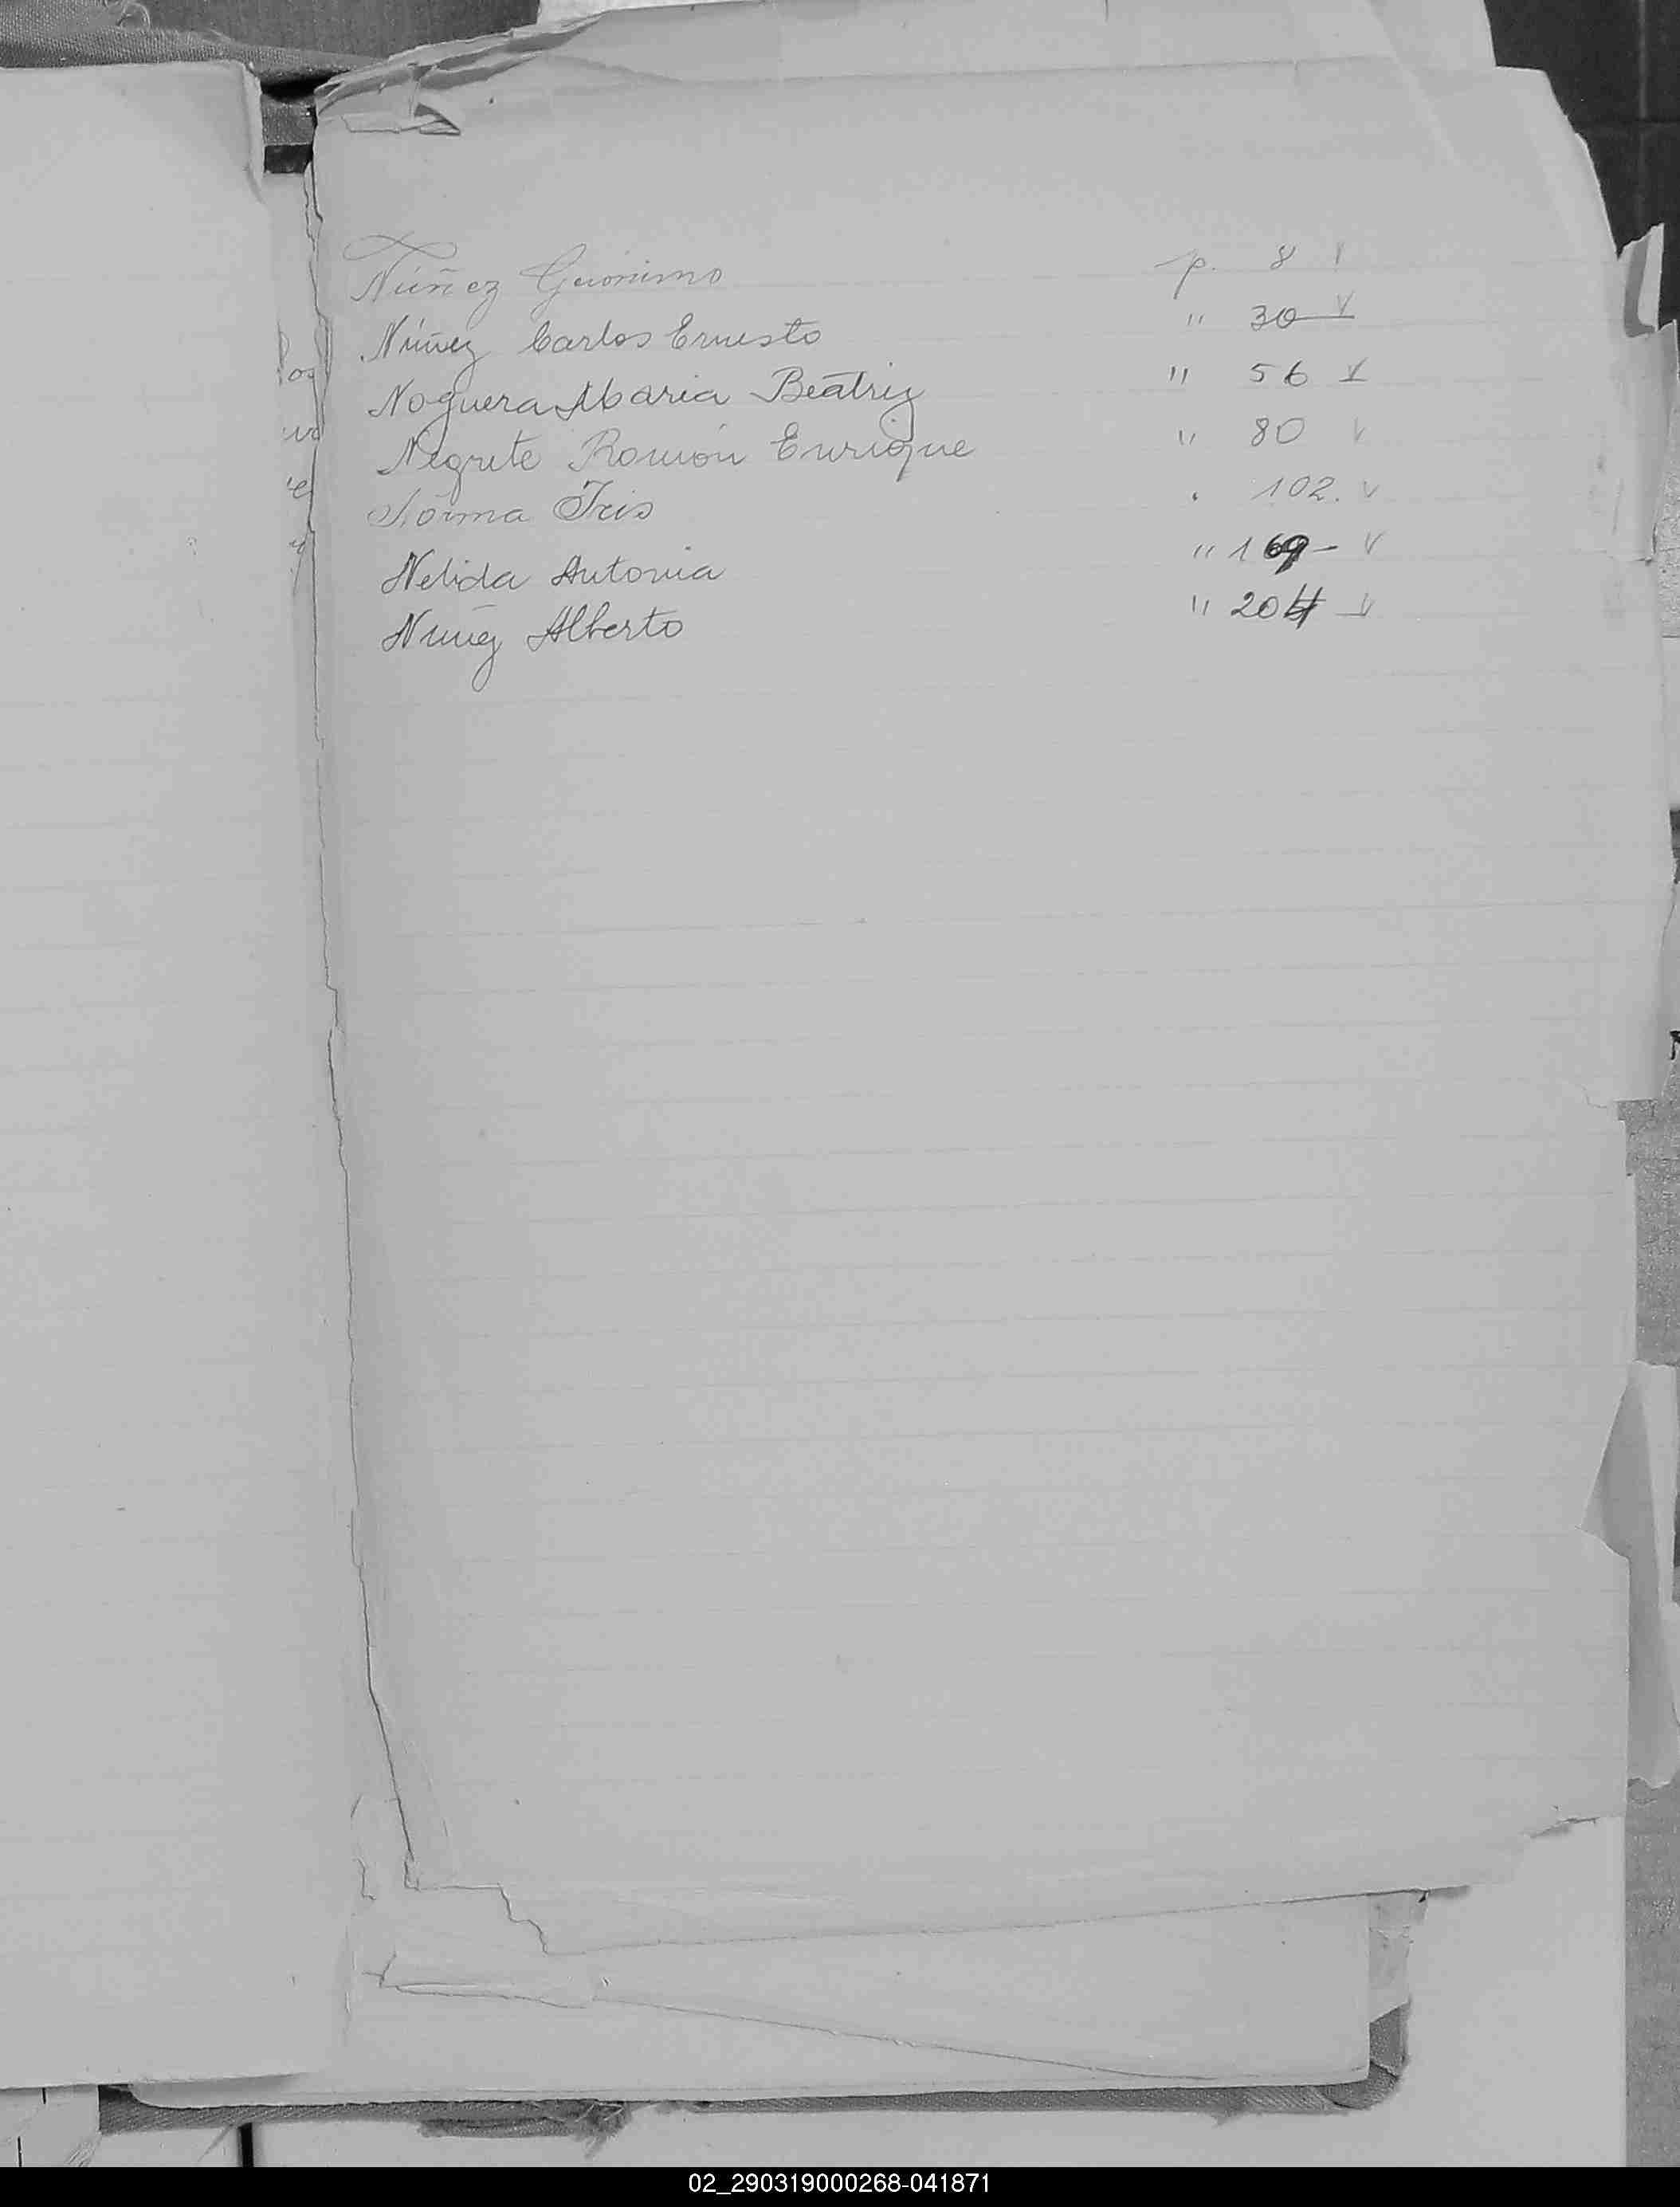 Núñez Geronimo p. 8 V
Núñez Carlos Ernesto " 30 V
Noguera Maria Beatriz " 56 V
Negrete Ramón Enrique " 80 V
Norma Iris . 102. V
Nelida Antonia " 169 - V
Nuñez Alberto " 204 V
02_290319000268-041871